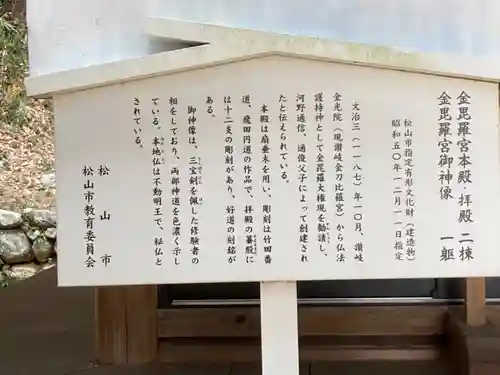 金毘羅宮本殿・拝殿 二棟
金毘羅宮御神像 一躯
松山市指定有形文化財(建造物)
昭和五〇年一二月一一日指定
文治三(一一八七)年一〇月、讃岐
金光院(現讃岐金刀比羅宮)から仏法
護持神として金毘羅大権現を勧請し、
河野通信、通俊父子によって創建され
たと伝えられている。
本殿は扇垂木を用い、彫刻は竹田番
道、飛田円道の作品で、拝殿の蟇股に
は十二支の彫刻があり、好道の刻銘が
ある。
御神像は、三宝剣を佩した修験者の
相をしており、両部神道を色濃く示し
ている。本地仏は不動明王で、秘仏と
されている。
松山市
松山市教育委員会